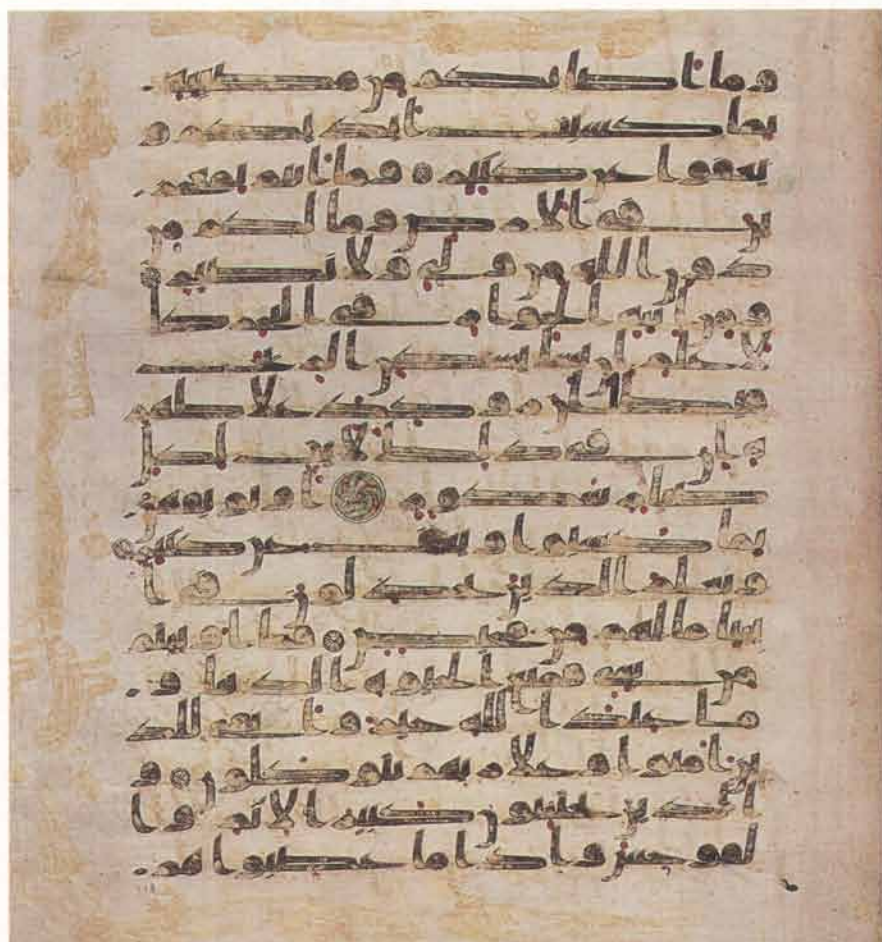 وما اصابكم من مصيبه
بما كسبت ايديكم و
يعفوا عن كثير وما انتم بمعجز
ين في الارض وما لكم من
دون الله من ولي ولا نصير
ومن ايته الجوار في البحر كا
لاعلم ان يشا يسكن الريح فيـ
ظللن رواكد على ظهره
ان في ذلك لايت لكل
صبار شكور او يوبقهن
بما كسبوا ويعف عن كثير
ويعلم الذين يجدلون في ا
يتنا ما لهم من محيص فما اوتيتم
من شي فمتع الحيوه الدنيا و
ما عند الله خير وابقى للذ
ين امنوا وعلى ربهم يتوكلون و
الذين يجتنبون كبير الاثم وا
لفوحش واذا ما غضبوا هم